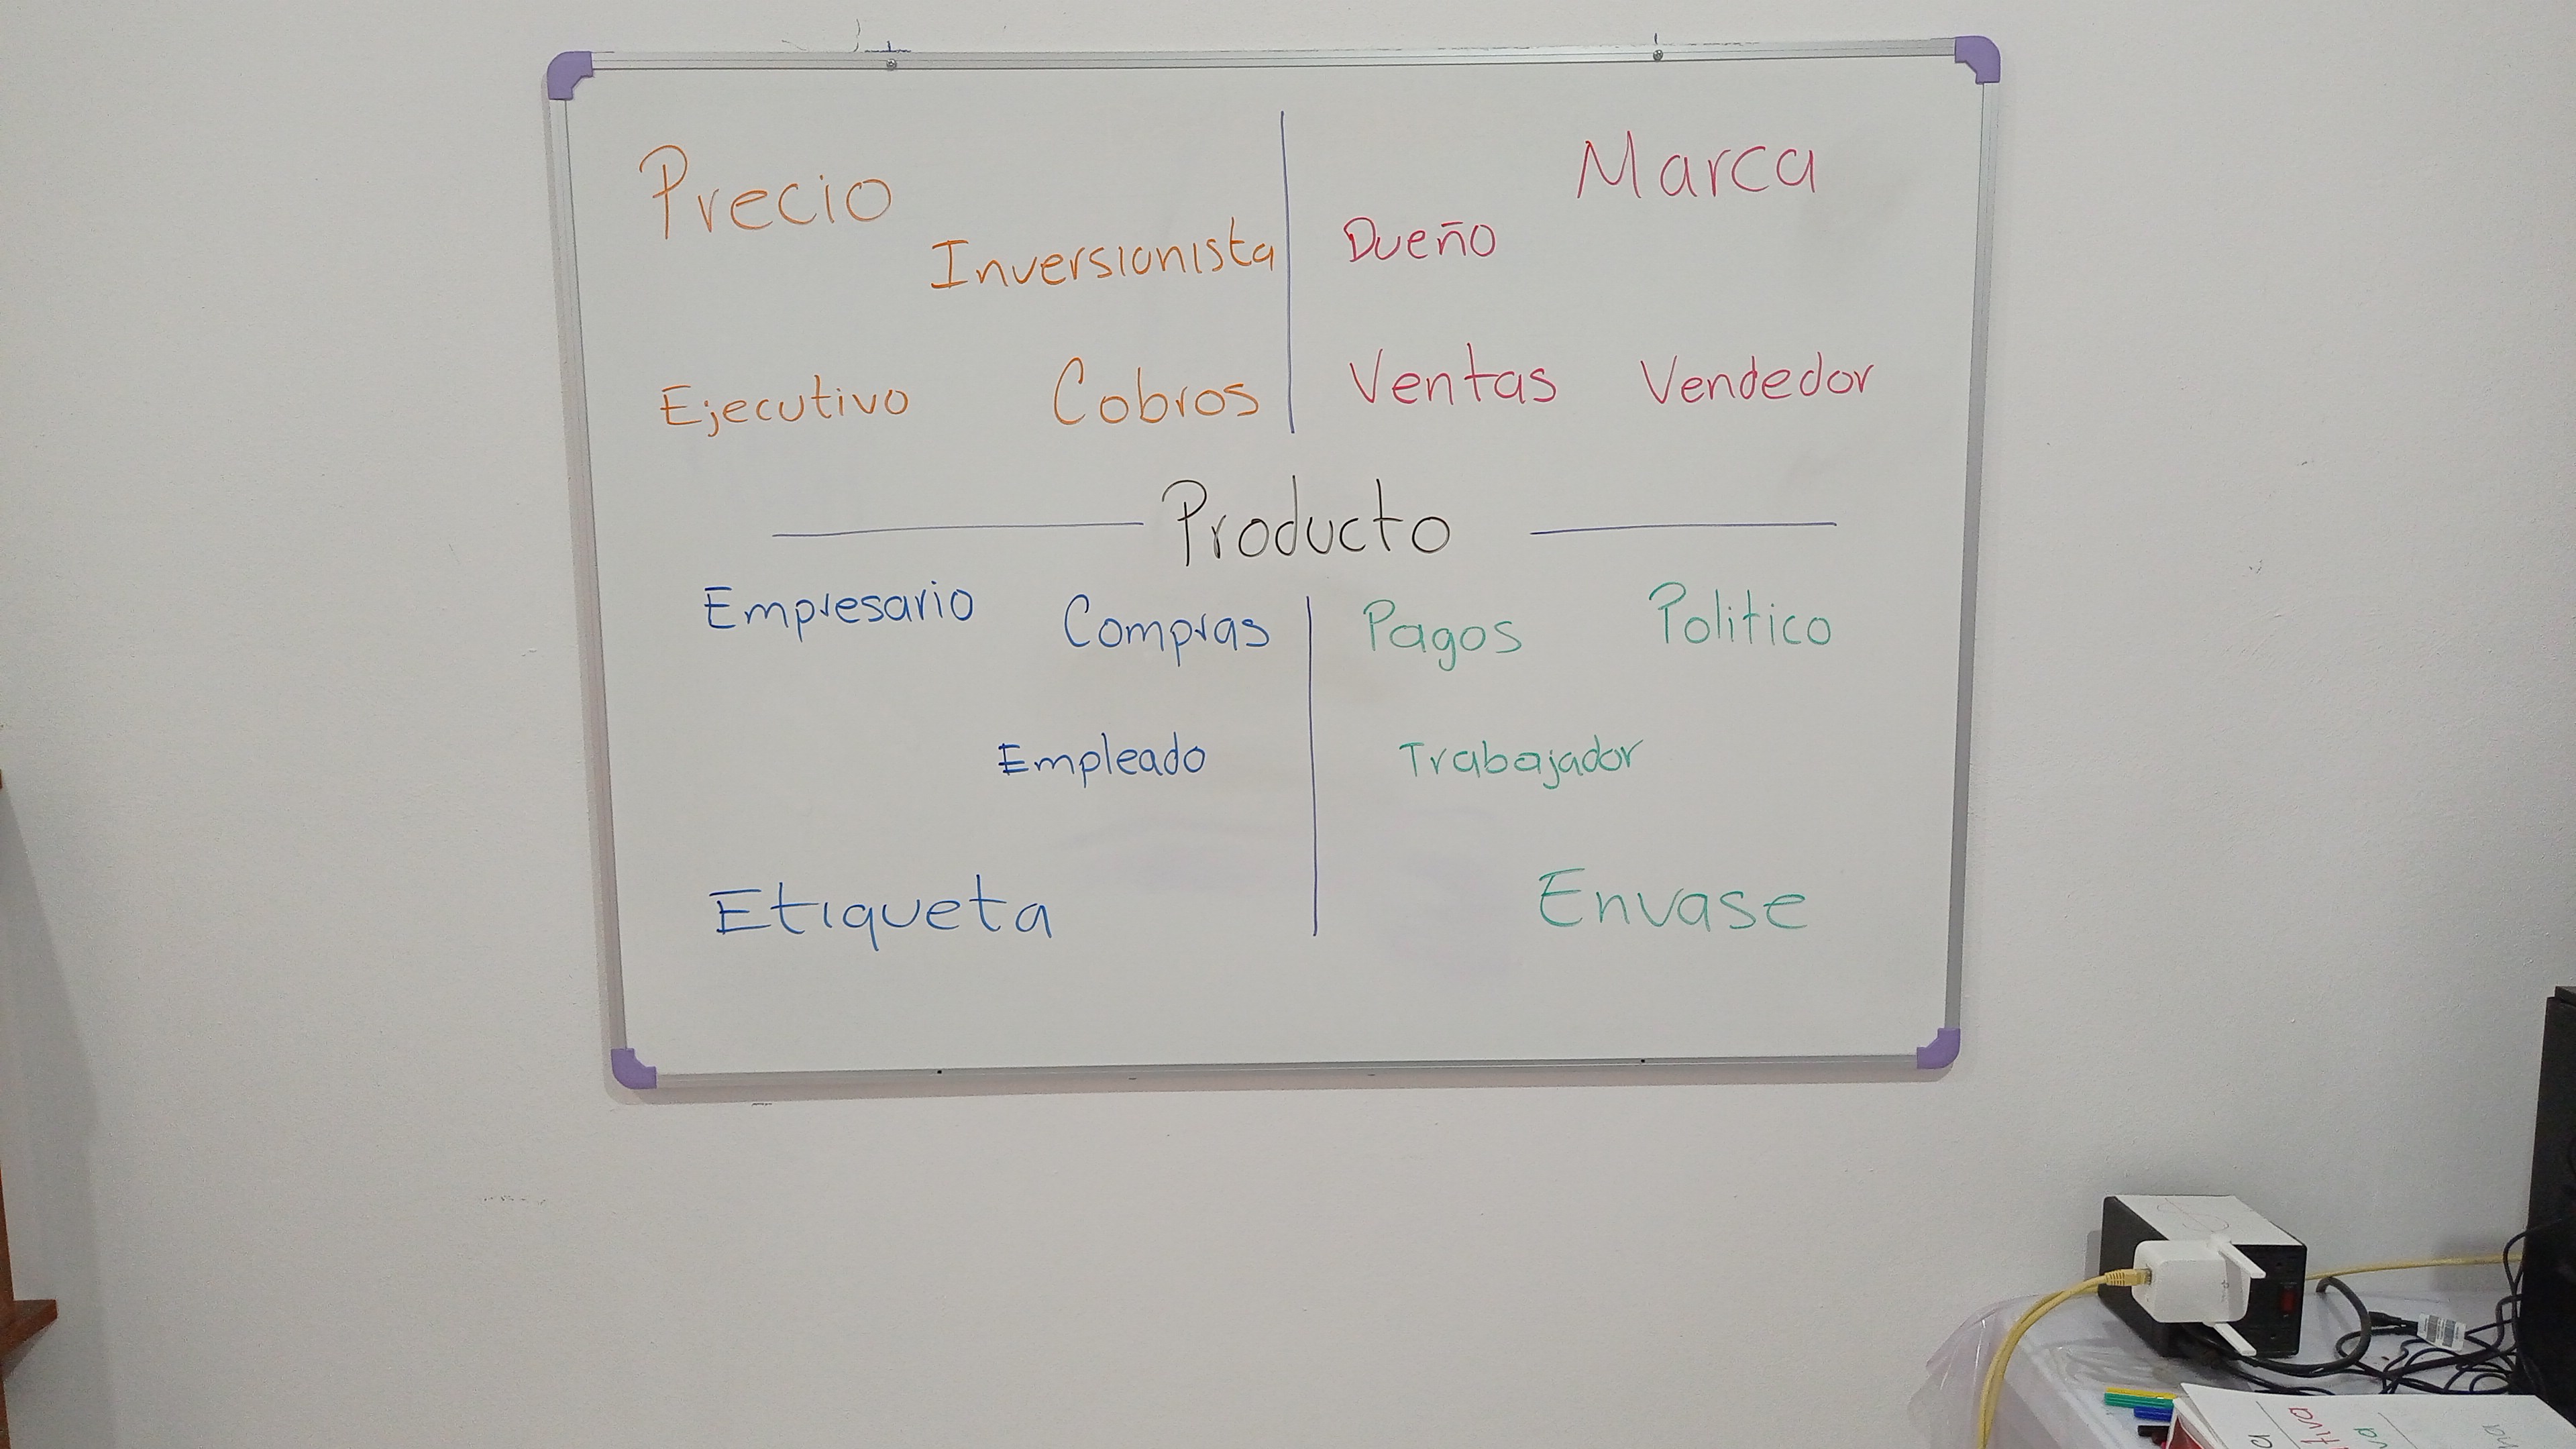 Precio
Inversionista
Ejecutivo Cobros
Marca
Dueño
Ventas Vendedor
Producto
Empresario Compras
Empleado
Etiqueta
Pagos Politico
Trabajador
Envase